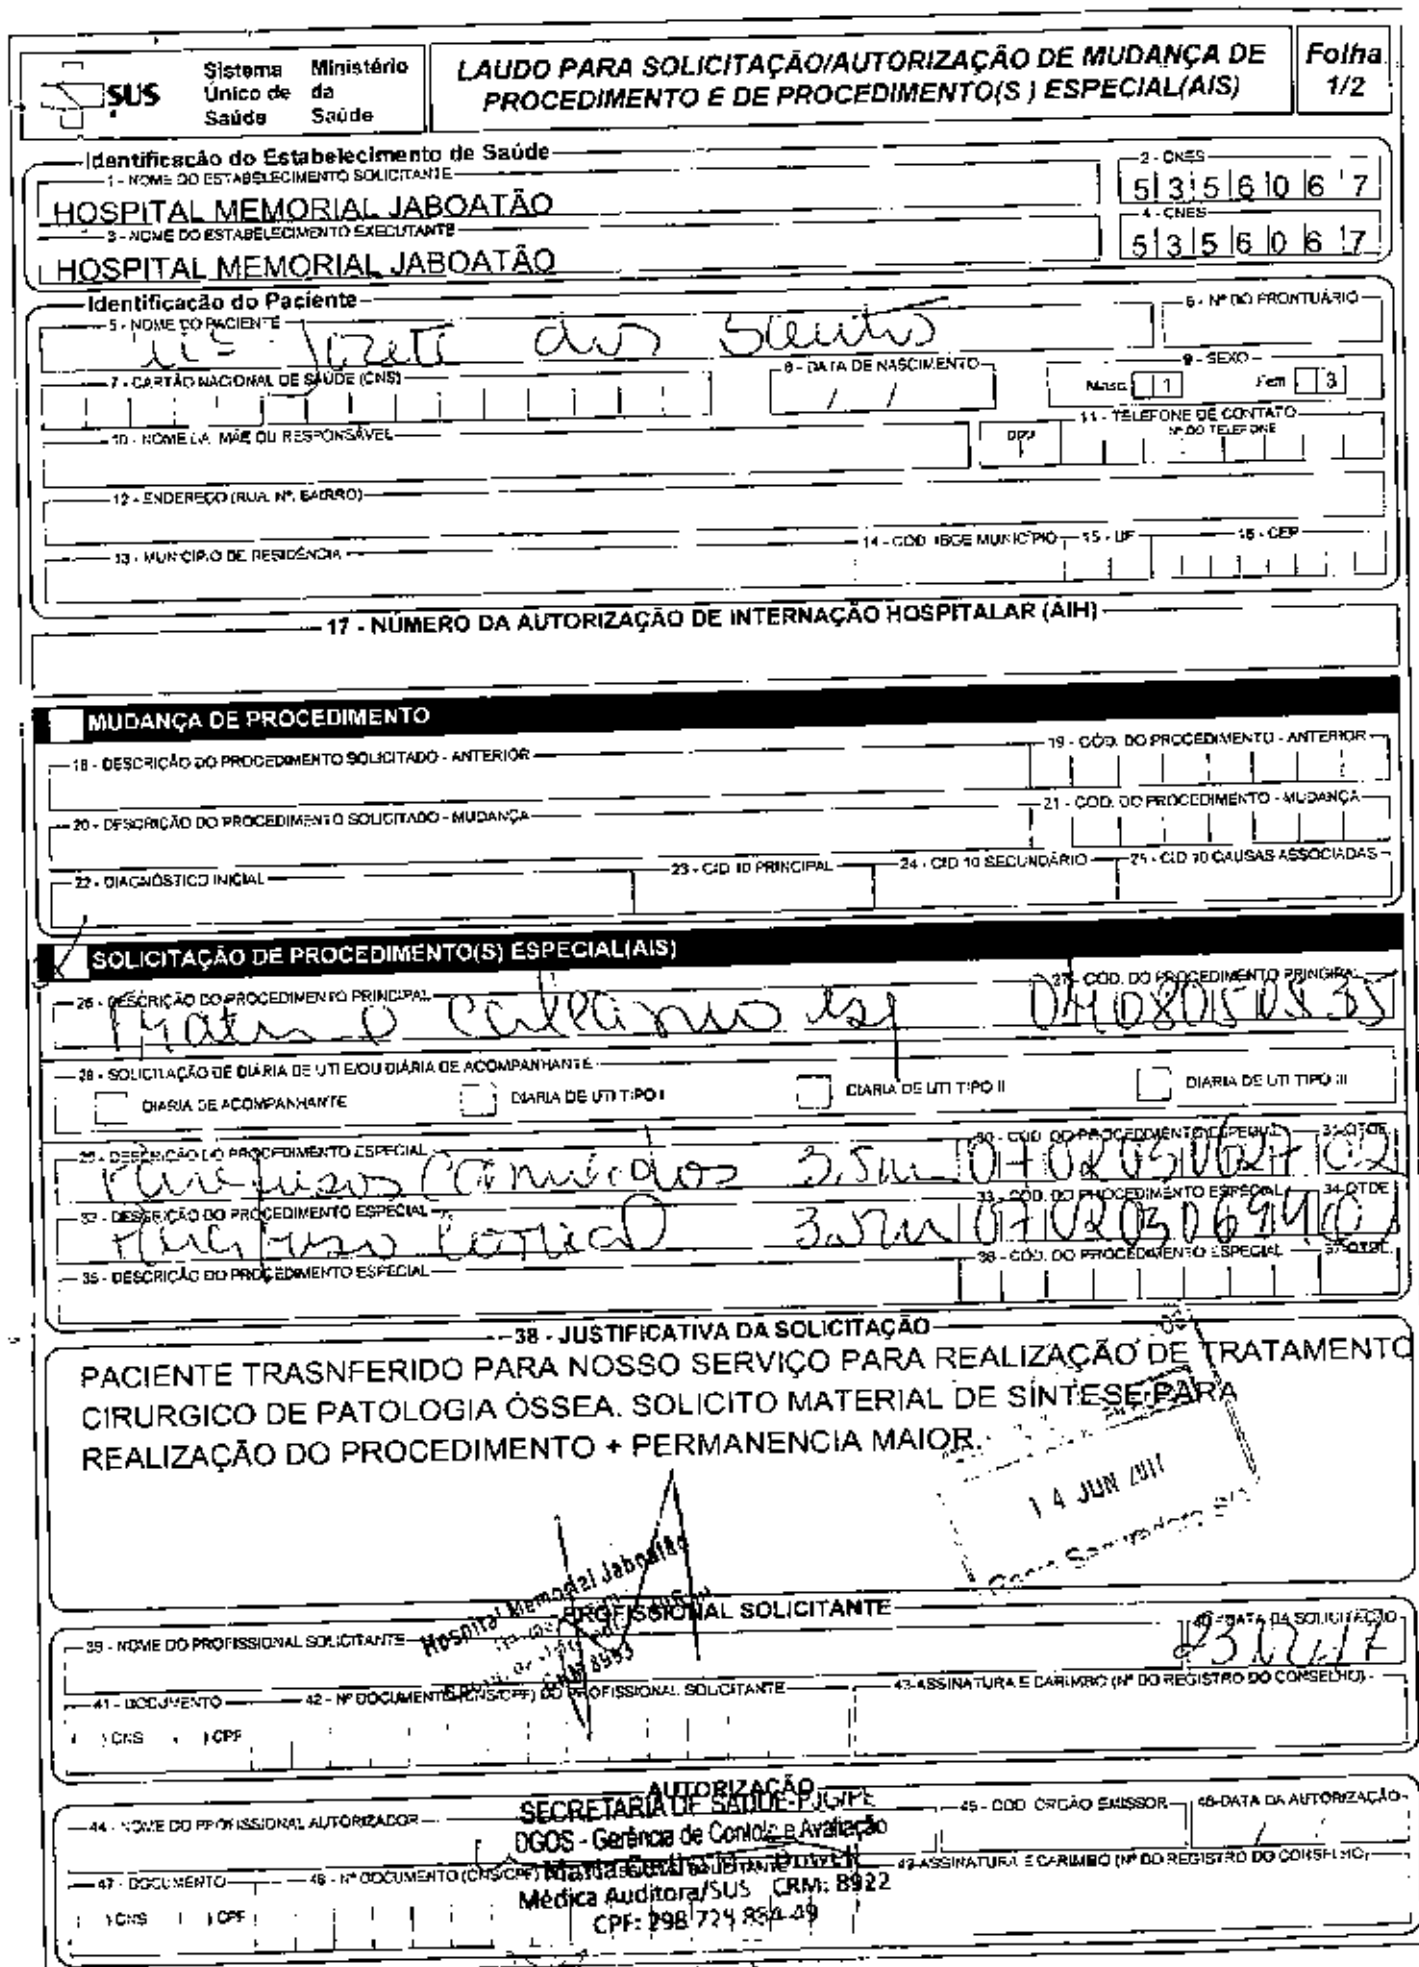 SUS
Sistema Único de Saúde
Ministério da Saúde
LAUDO PARA SOLICITAÇÃO/AUTORIZAÇÃO DE MUDANÇA DE PROCEDIMENTO E DE PROCEDIMENTO(S ) ESPECIAL(AIS)
Folha 1/2
Identificação do Estabelecimento de Saúde
1 - NOME DO ESTABELECIMENTO SOLICITANTE
HOSPITAL MEMORIAL JABOATÃO
2 - CNES
5 3 5 6 0 6 7
3 - NOME DO ESTABELECIMENTO EXECUTANTE
HOSPITAL MEMORIAL JABOATÃO
4 - CNES
5 3 5 6 0 6 7
Identificação do Paciente
5 - NOME DO PACIENTE
dos Santos
6 - Nº DO PRONTUÁRIO
7 - CARTÃO NACIONAL DE SAÚDE (CNS)
8 - DATA DE NASCIMENTO
/ /
9 - SEXO
Masc 1 Fem 3
10 - NOME DA MÃE OU RESPONSÁVEL
11 - TELEFONE DE CONTATO
DDD Nº DO TELEFONE
12 - ENDEREÇO (RUA, Nº, BAIRRO)
13 - MUNICÍPIO DE RESIDÊNCIA
14 - COD. IBGE MUNICÍPIO
15 - UF
16 - CEP
17 - NÚMERO DA AUTORIZAÇÃO DE INTERNAÇÃO HOSPITALAR (AIH)
MUDANÇA DE PROCEDIMENTO
18 - DESCRIÇÃO DO PROCEDIMENTO SOLICITADO - ANTERIOR
19 - CÓD. DO PROCEDIMENTO - ANTERIOR
20 - DESCRIÇÃO DO PROCEDIMENTO SOLICITADO - MUDANÇA
21 - COD. DO PROCEDIMENTO - MUDANÇA
22 - DIAGNÓSTICO INICIAL
23 - CID 10 PRINCIPAL
24 - CID 10 SECUNDÁRIO
25 - CID 10 CAUSAS ASSOCIADAS
SOLICITAÇÃO DE PROCEDIMENTO(S) ESPECIAL(AIS)
26 - DESCRIÇÃO DO PROCEDIMENTO PRINCIPAL
27 - COD. DO PROCEDIMENTO PRINCIPAL
calcâneo esq 0408050535
28 - SOLICITAÇÃO DE DIÁRIA DE UTI E/OU DIÁRIA DE ACOMPANHANTE
DIARIA DE ACOMPANHANTE
DIARIA DE UTI TIPO I
DIARIA DE UTI TIPO II
DIARIA DE UTI TIPO III
29 - DESCRIÇÃO DO PROCEDIMENTO ESPECIAL
30 - COD. DO PROCEDIMENTO ESPECIAL
31-QTDE
Parafusos Canulados 3,5mm 0702030627 02
32 - DESCRIÇÃO DO PROCEDIMENTO ESPECIAL
33 - COD. DO PROCEDIMENTO ESPECIAL
34-QTDE
Parafuso cortical 3.5mm
35 - DESCRIÇÃO DO PROCEDIMENTO ESPECIAL
36 - COD. DO PROCEDIMENTO ESPECIAL
37-QTDE
38 - JUSTIFICATIVA DA SOLICITAÇÃO
PACIENTE TRASNFERIDO PARA NOSSO SERVIÇO PARA REALIZAÇÃO DE TRATAMENTO
CIRURGICO DE PATOLOGIA ÓSSEA. SOLICITO MATERIAL DE SÍNTESE PARA
REALIZAÇÃO DO PROCEDIMENTO + PERMANENCIA MAIOR.
14 JUN 2017
Hospital Memorial Jaboatão
CRM 8993
PROFISSIONAL SOLICITANTE
39 - NOME DO PROFISSIONAL SOLICITANTE
40 - DATA DA SOLICITAÇÃO
41 - DOCUMENTO
( ) CNS ( ) CPF
42 - Nº DOCUMENTO (CNS/CPF) DO PROFISSIONAL SOLICITANTE
43-ASSINATURA E CARIMBO (Nº DO REGISTRO DO CONSELHO)
AUTORIZAÇÃO
SECRETARIA DE SAÚDE-PJG/PE
DGOS - Gerência de Controle e Avaliação
Médica Auditora/SUS CRM: 8922
44 - NOME DO PROFISSIONAL AUTORIZADOR
45 - COD. ORGÃO EMISSOR
46-DATA DA AUTORIZAÇÃO
/ /
47 - DOCUMENTO
( ) CNS ( ) CPF
48 - Nº DOCUMENTO (CNS/CPF)
49-ASSINATURA E CARIMBO (Nº DO REGISTRO DO CONSELHO)